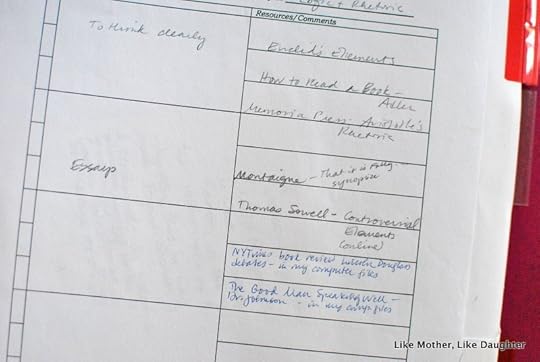 Logic + Rhetoric
Resources/Comments
To think clearly
Euclid's Elements
How to Read a Book -
Adler
Memoria Press: Aristotle's
Rhetoric
Essays
Montaigne - That it is folly -
synopsize
Thomas Sowell - Controversial
Elements
(online)
NYTimes book review Lincoln Douglas
debates - in my computer files
The Good Man Speaking Well -
Dr. Johnson - in my comp files
Like Mother, Like Daughter